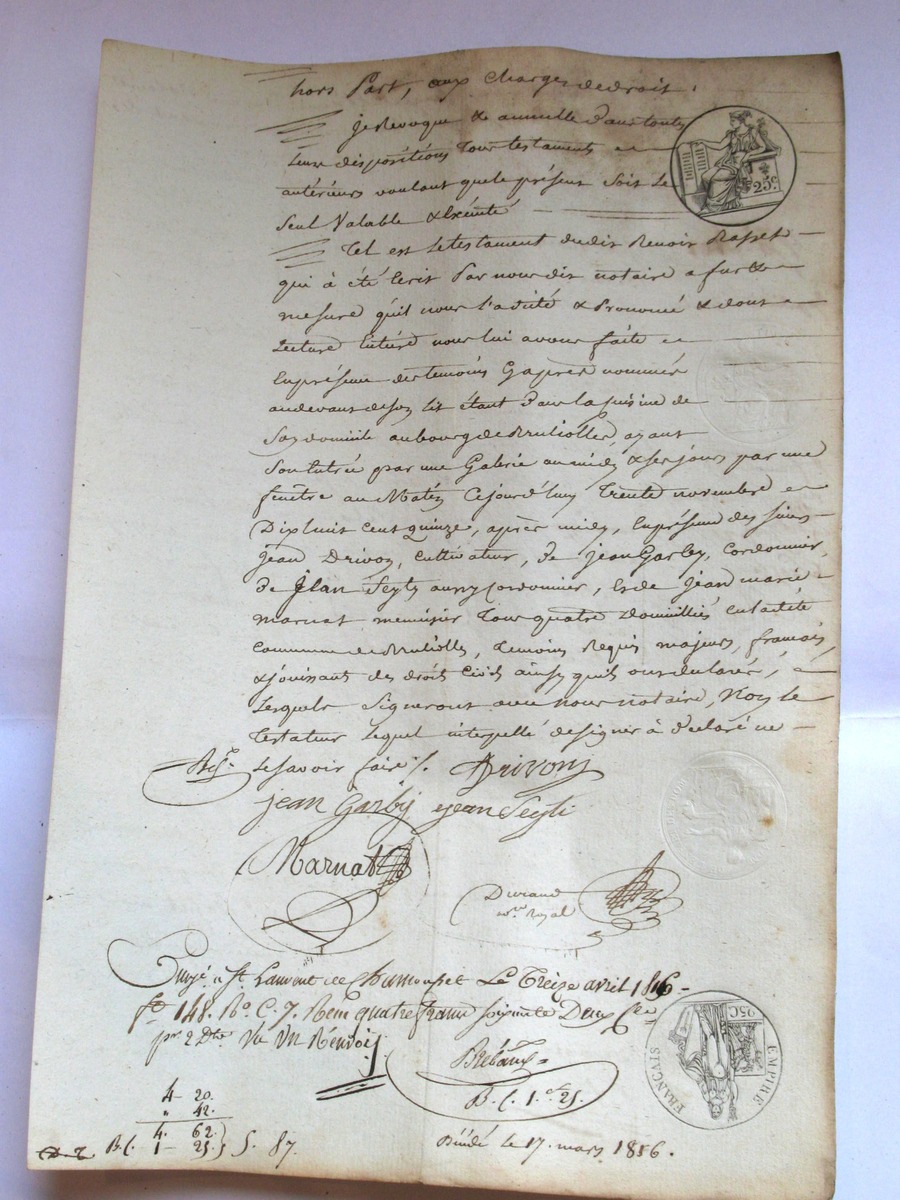 hors Part, aux charges de droit.
Je Revoque & annulle d'aus touts
Leurs dispositions Tous testaments
antérieurs voulant que le présent soit le
Seul Valable & Exécuté
25.c
Tel est le testament dudit Renoir
qui à été Ecrit Par nous dit notaire a fur &
mesure qu'il nous l'a dicté & Prononcé & dont
Lecture Entière nous lui avons faite
En présence des temoins Cy après nommés
au devant de son lit étant dans la cuisine de
son domicile au bourg de Brulliolles, ayant
Son Entrée par une Galerie au midy & ses jours par une
fenêtre au Matin Cejourd'huy Trente novembre
Dix huit cent quinze, après midy, En présence des sieurs
Jean Drivon, cultivateur, de Jean Garby, Cordonnier,
de Jean Seyty aussy cordonnier, & de Jean marie
Marnat menuisier Tous quatre Domiciliés en ladite
Commune de Brulliolles, Temoins Requis majeurs, francais,
& jouissant des droit Civils ainsy qu'ils ont déclaré,
Lesquels Signeront avec nous notaire, Non le
Testateur Lequel interpellé de signer à déclaré ne
Le savoir faire /. Drivon
Jean Garby Jean Seyti
Marnat
Durand
no.re Royal
à St Laurent de Chamousset Le Treize avril 1816
fo 148. Ro. C. 7. Reçu quatre francs soixante Deux
pr 2 Dto Vu Un Renvoi
B. C. 1. 25.
EMPIRE
FRANÇAIS
25C
4 - 20.
" 42.
4. 62
B. C. 1 - 25. } 5. 87.
le 17. mars 1816.